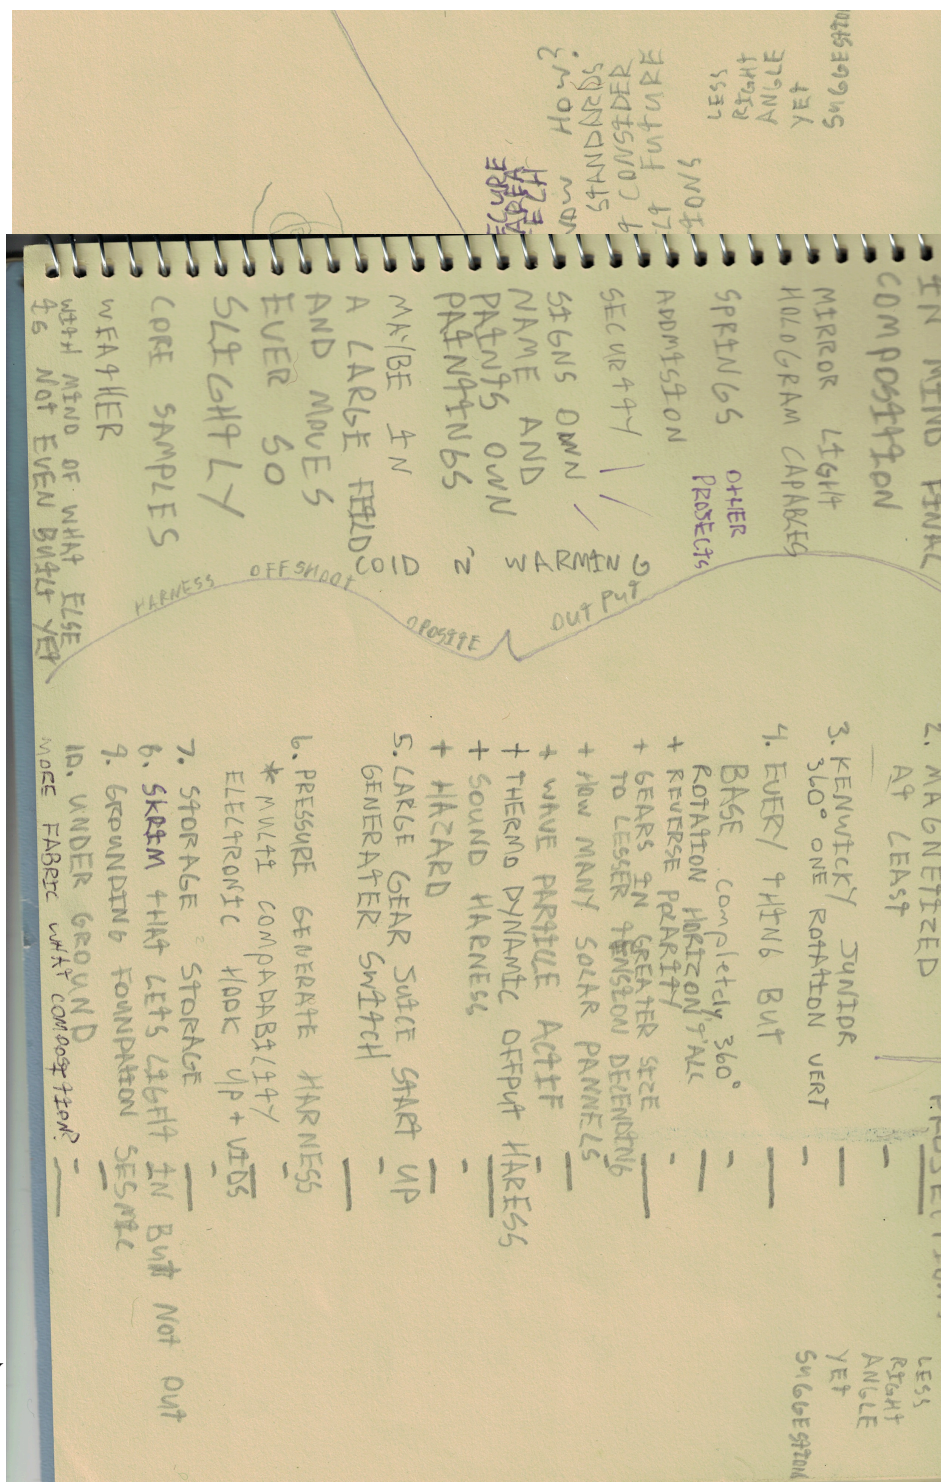 SUGGESTIO
YET
ANGLE
RIGHT
LESS
IONS
FUTURE
CONSIDER
STANDARDS
HOW?
IN MIND FINAL
COMPOSITION
MIRROR LIGHT
HOLOGRAM CAPABLES
SPRINGS
OTHER
PROJECTS
ADDMISTION
SECURITY
SIGNS OWN
NAME AND
PAINTS OWN
PAINTINGS
MAYBE IN
A LARGE FEILD
AND MOVES
EVER SO
SLIGHTLY
CORE SAMPLES
WEATHER
WITH MIND OF WHAT ELSE
IS NOT EVEN BUILT YET
COID N WARMING
HARNESS
OFFSHOOT
OPOSITE
OUTPUT
2. MAGNETIZED
AT LEAST
3. KENWICKY JUNIOR
360° ONE ROTATION VERT
4. EVERY THING BUT
BASE completely 360°
ROTATION HORIZON T'ALL
+ REVERSE POLARITY
+ GEARS IN GREATER SIZE
TO LESSER TENSION DECENDING
+ HOW MANY SOLAR PANNELS
+ WAVE PARTICLE ACTIF
+ THERMO DYNAMIC OFFPUT HARESS
+ SOUND HARNESS
+ HAZARD
5. LARGE GEAR JUICE START UP
GENERATER SWITCH
6. PRESSURE GENERATE HARNESS
* MULTI COMPADABILITY
ELECTRONIC HOOK UP + VIDS
7. STORAGE STORAGE
8. SKRIM THAT LETS LIGHT IN BUT NOT OUT
9. GROUNDING FOUNDATION SESMIC
10. UNDER GROUND
MORE FABRIC WHAT COMPOSITION?
LESS
RIGHT
ANGLE
YET
SUGGESTION